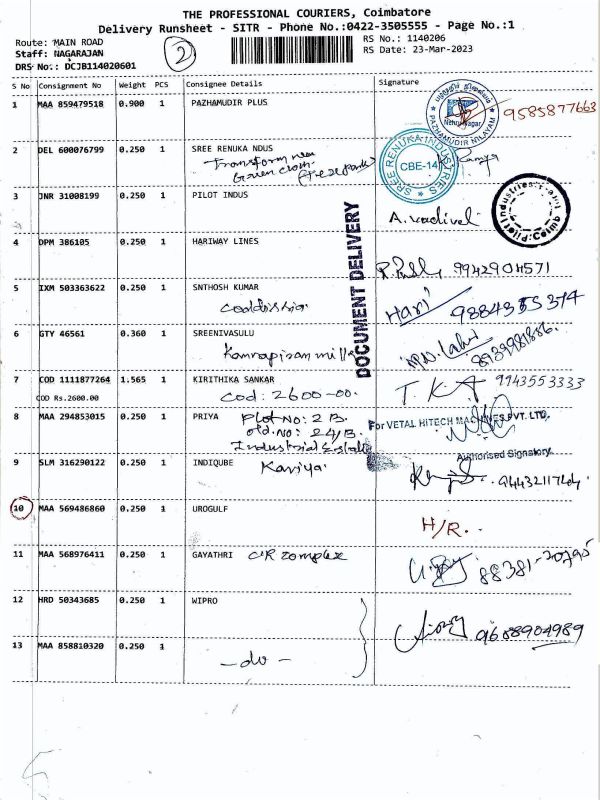 THE PROFESSIONAL COURIERS, Coimbatore
Delivery Runsheet - SITR - Phone No.:0422-3505555 - Page No.:1
Route: MAIN ROAD
Staff: NAGARAJAN
DRS No.: DCJB114020601
2
RS No.: 1140206
RS Date: 23-Mar-2023
S No Consignment No Weight PCS Consignee Details Signature
1 MAA 859479518 0.900 1 PAZHAMUDIR PLUS 9585877663
PAZHAMUDIR NILAYAM
Nehru Nagar
2 DEL 600076799 0.250 1 SREE RENUKA NDUS
Transform near
SREE RENUKA INDUSTRIES
CBE-14
3 JNR 31008199 0.250 1 PILOT INDUS
A. Vadivel
4 DPM 386105 0.250 1 HARIWAY LINES
9942904571
DOCUMENT DELIVERY
5 IXM 503363622 0.250 1 SNTHOSH KUMAR
Coddissia
Hari 9884355374
6 GTY 46561 0.360 1 SREENIVASULU
Kannapiran mills
7 COD 1111877264 1.565 1 KIRITHIKA SANKAR
COD Rs.2600.00
Cod: 2600-00.
T. K A 9943553333
8 MAA 294853015 0.250 1 PRIYA Plot No: 2 B.
old. No: 24/B.
Industrial Estate
For VETAL HITECH MACHINES PVT. LTD.
Authorised Signatory
9 SLM 316290122 0.250 1 INDIQUBE
Kaviya
9443211764
10 MAA 569486860 0.250 1 UROGULF
H/R..
11 MAA 568976411 0.250 1 GAYATHRI C.R complex
88381-20795
12 HRD 50343685 0.250 1 WIPRO
9688904989
13 MAA 858810320 0.250 1
- do -